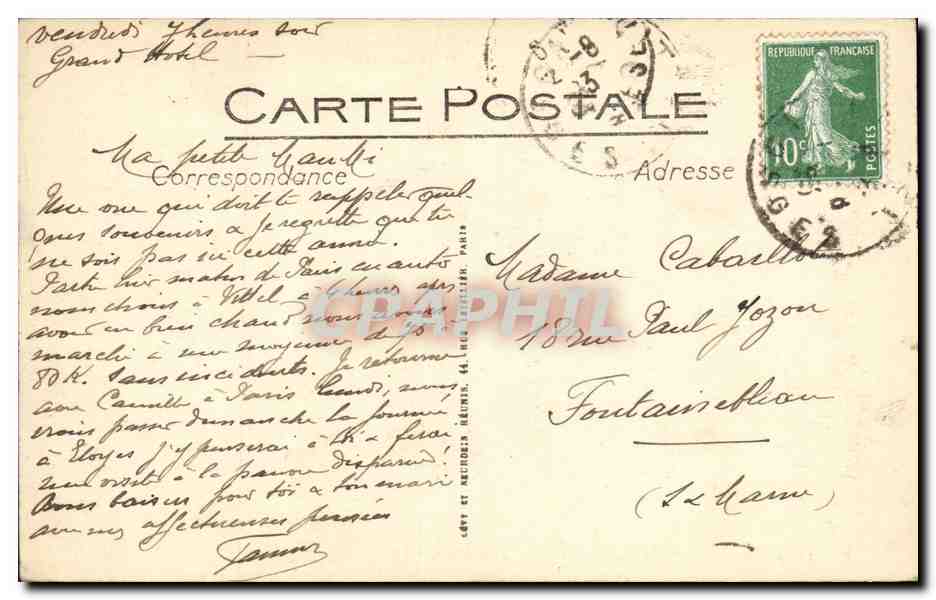 vendredi 7 heures soir
Grand Hotel —
CARTE POSTALE
REPUBLIQUE FRANÇAISE
10c
POSTES
Ma petite
Correspondance
Adresse
Une vue qui doit te rappeler quel-
ques souvenirs & je regrette que tu
ne sois pas ici cette année.
Partis hier matin de Paris en auto
nous étions à Vittel à 4 heures après
avoir eu bien chaud nous avons
marché à une moyenne de 70
80 K. sans incidents. Je retourne
avec Camille à Paris lundi, nous
irons passer dimanche la journée
à Eloyes j'y penserai à toi & ferai
une visite à la pauvre disparue!
Bons baisers pour toi & ton mari
avec mes affectueuses pensées
Madame
18 rue Paul Jozon
Fontainebleau
(S & Marne)
LÉVY ET NEURDEIN RÉUNIS, 44, RUE LETELLIER, PARIS
CPAPHIL